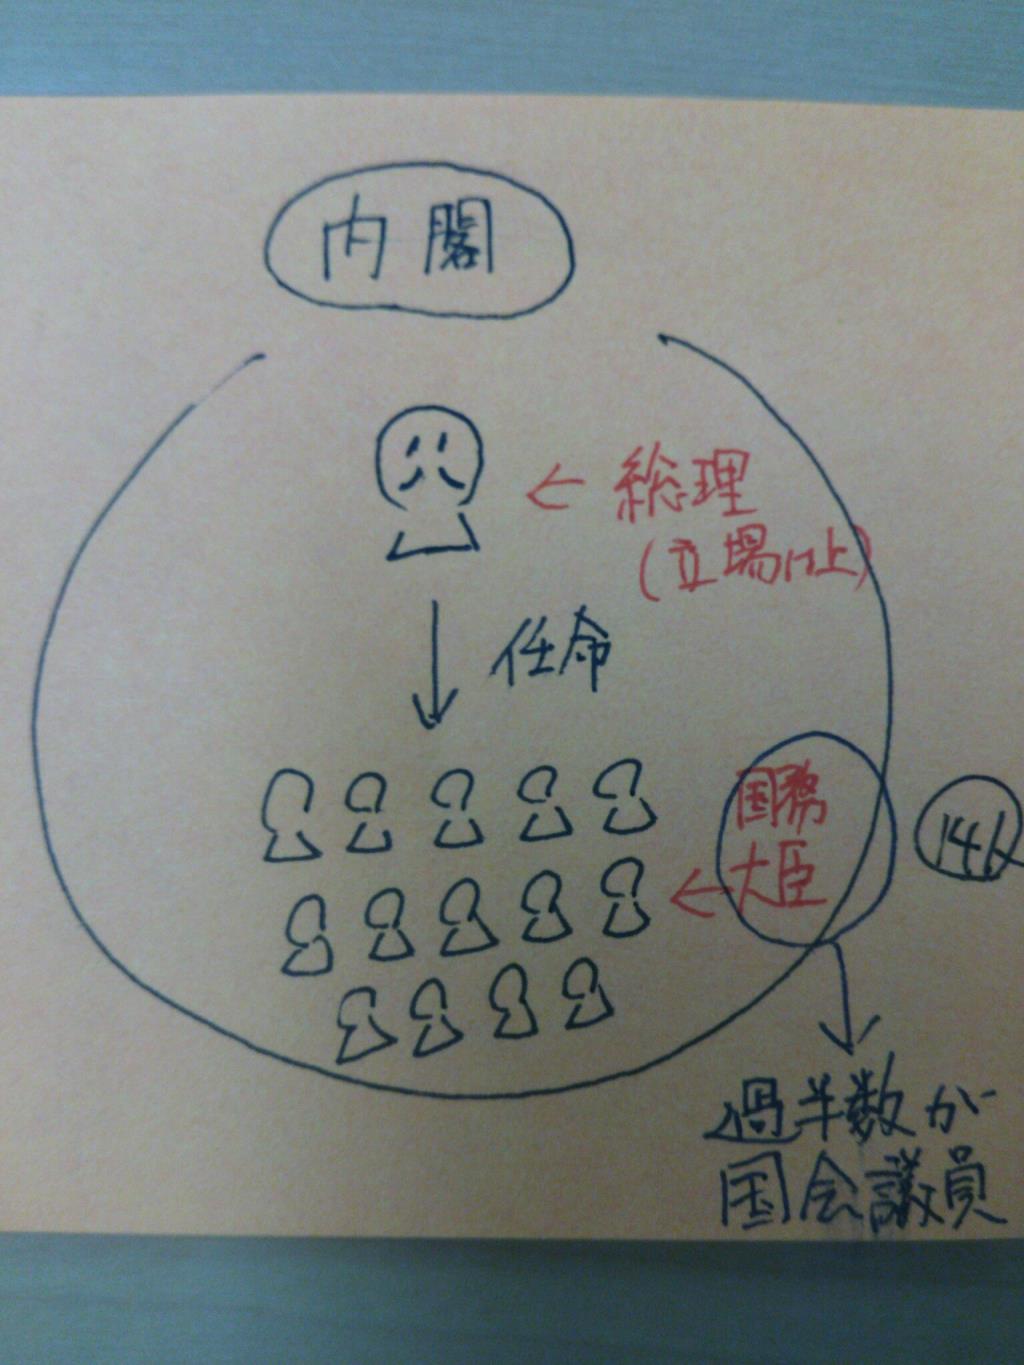 内閣
← 総理
(立場は上)
任命
国務
← 大臣
14人
過半数が
国会議員